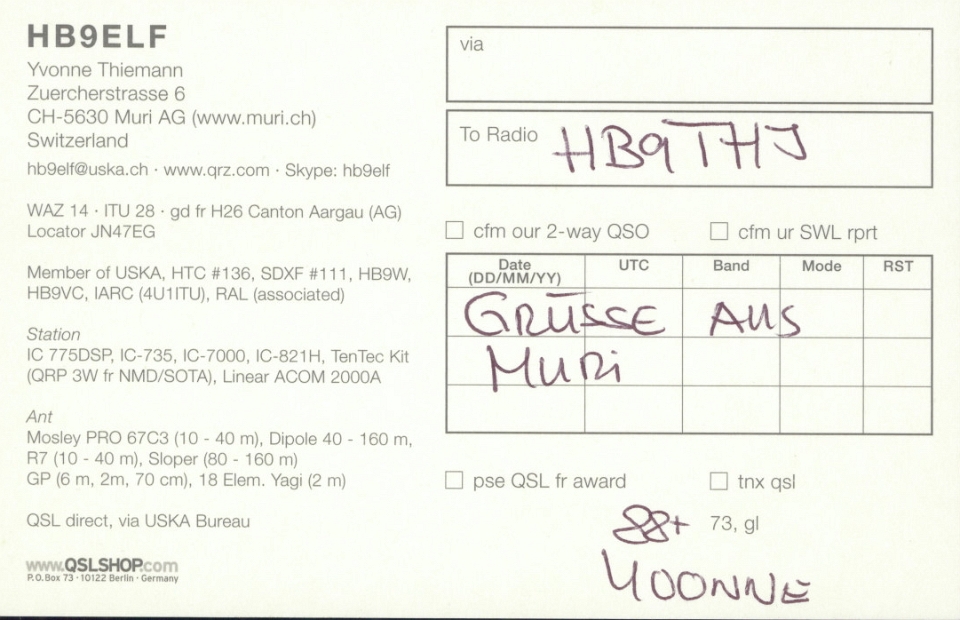 HB9ELF
Yvonne Thiemann
Zuercherstrasse 6
CH-5630 Muri AG (www.muri.ch)
Switzerland
hb9elf@uska.ch · www.qrz.com · Skype: hb9elf
WAZ 14 · ITU 28 · gd fr H26 Canton Aargau (AG)
Locator JN47EG
Member of USKA, HTC #136, SDXF #111, HB9W,
HB9VC, IARC (4U1ITU), RAL (associated)
Station
IC 775DSP, IC-735, IC-7000, IC-821H, TenTec Kit
(QRP 3W fr NMD/SOTA), Linear ACOM 2000A
Ant
Mosley PRO 67C3 (10 - 40 m), Dipole 40 - 160 m,
R7 (10 - 40 m), Sloper (80 - 160 m)
GP (6 m, 2m, 70 cm), 18 Elem. Yagi (2 m)
QSL direct, via USKA Bureau
www.QSLSHOP.com
P.O.Box 73 · 10122 Berlin · Germany
via
To Radio HB9THJ
cfm our 2-way QSO cfm ur SWL rprt
Date (DD/MM/YY) UTC Band Mode RST
GRÜSSE AUS
MURI
pse QSL fr award tnx qsl
88+ 73, gl
YVONNE